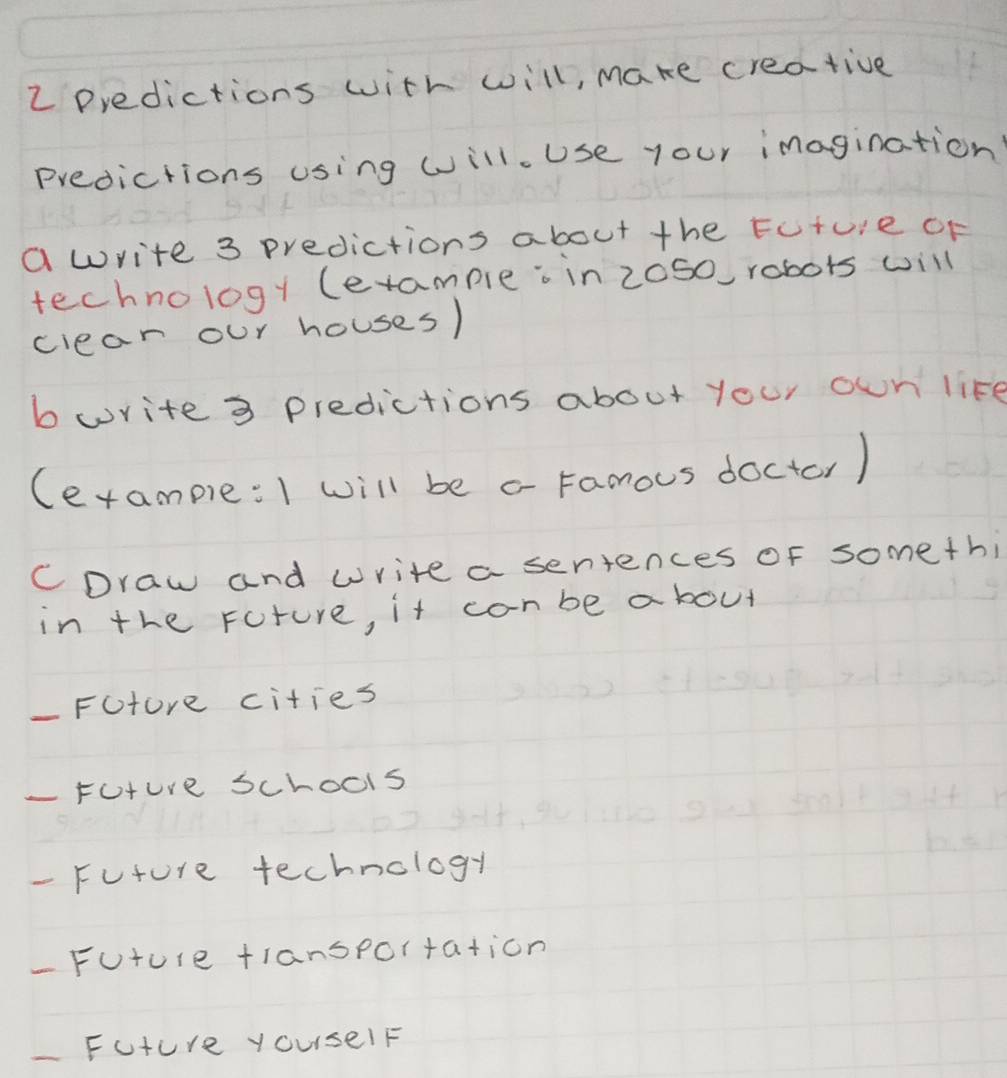 2 Predictions with will, make creative
predictions using will. Use your imagination
a write 3 predictions about the Future of
technology (example: in 2050, robots will
clean our houses)
b write 3 predictions about your own life
(example: I will be a famous doctor)
C Draw and write a sentences of somethi
in the future, it can be about
- Future cities
- Future schools
- Future technology
- Future transportation
- Future yourself